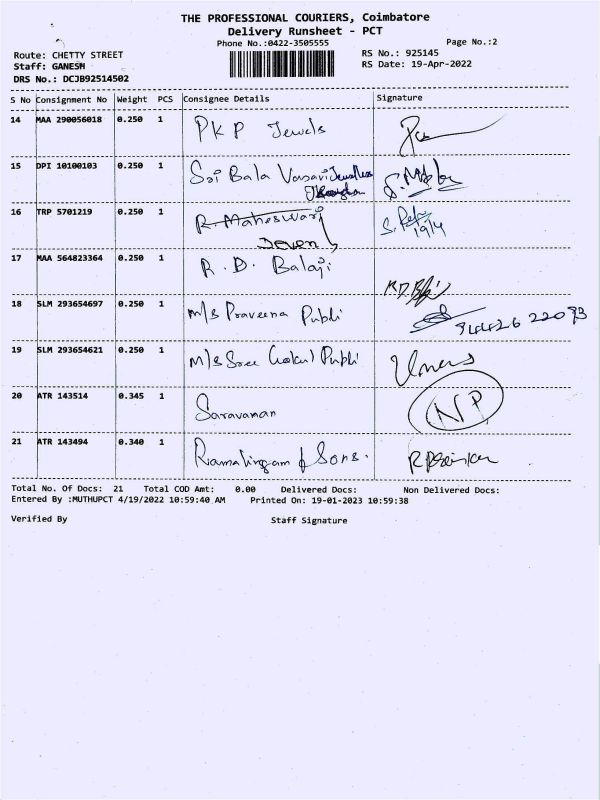 THE PROFESSIONAL COURIERS, Coimbatore
Delivery Runsheet - PCT
Phone No.:0422-3505555 Page No.:2
Route: CHETTY STREET RS No.: 925145
Staff: GANESH RS Date: 19-Apr-2022
DRS No.: DCJB92514502
S No Consignment No Weight PCS Consignee Details Signature
14 MAA 290056018 0.250 1 PKP Jewels
15 DPI 10100103 0.250 1 Sri Bala Vasavi Jewellers
16 TRP 5701219 0.250 1 R. Maheswari
Deven 19/4
17 MAA 564823364 0.250 1 R. D. Balaji
18 SLM 293654697 0.250 1 M/s Praveena Publi
19 SLM 293654621 0.250 1 M/s Sree Gokul Publi
20 ATR 143514 0.345 1 Saravanan NP
21 ATR 143494 0.340 1 Ramalingam & Sons.
Total No. Of Docs: 21 Total COD Amt: 0.00 Delivered Docs: Non Delivered Docs:
Entered By :MUTHUPCT 4/19/2022 10:59:40 AM Printed On: 19-01-2023 10:59:38
Verified By Staff Signature